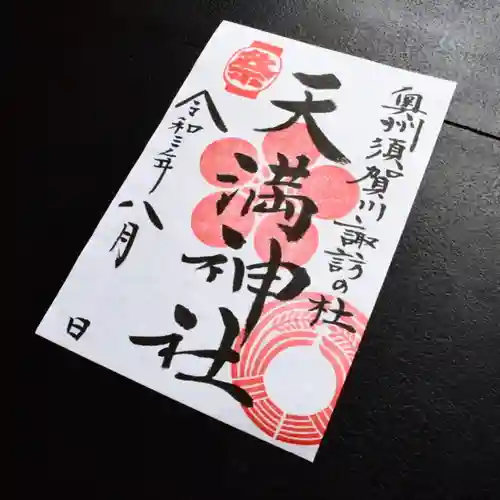 奥州須賀川諏訪の杜
天満神社
祭
令和三年八月
日